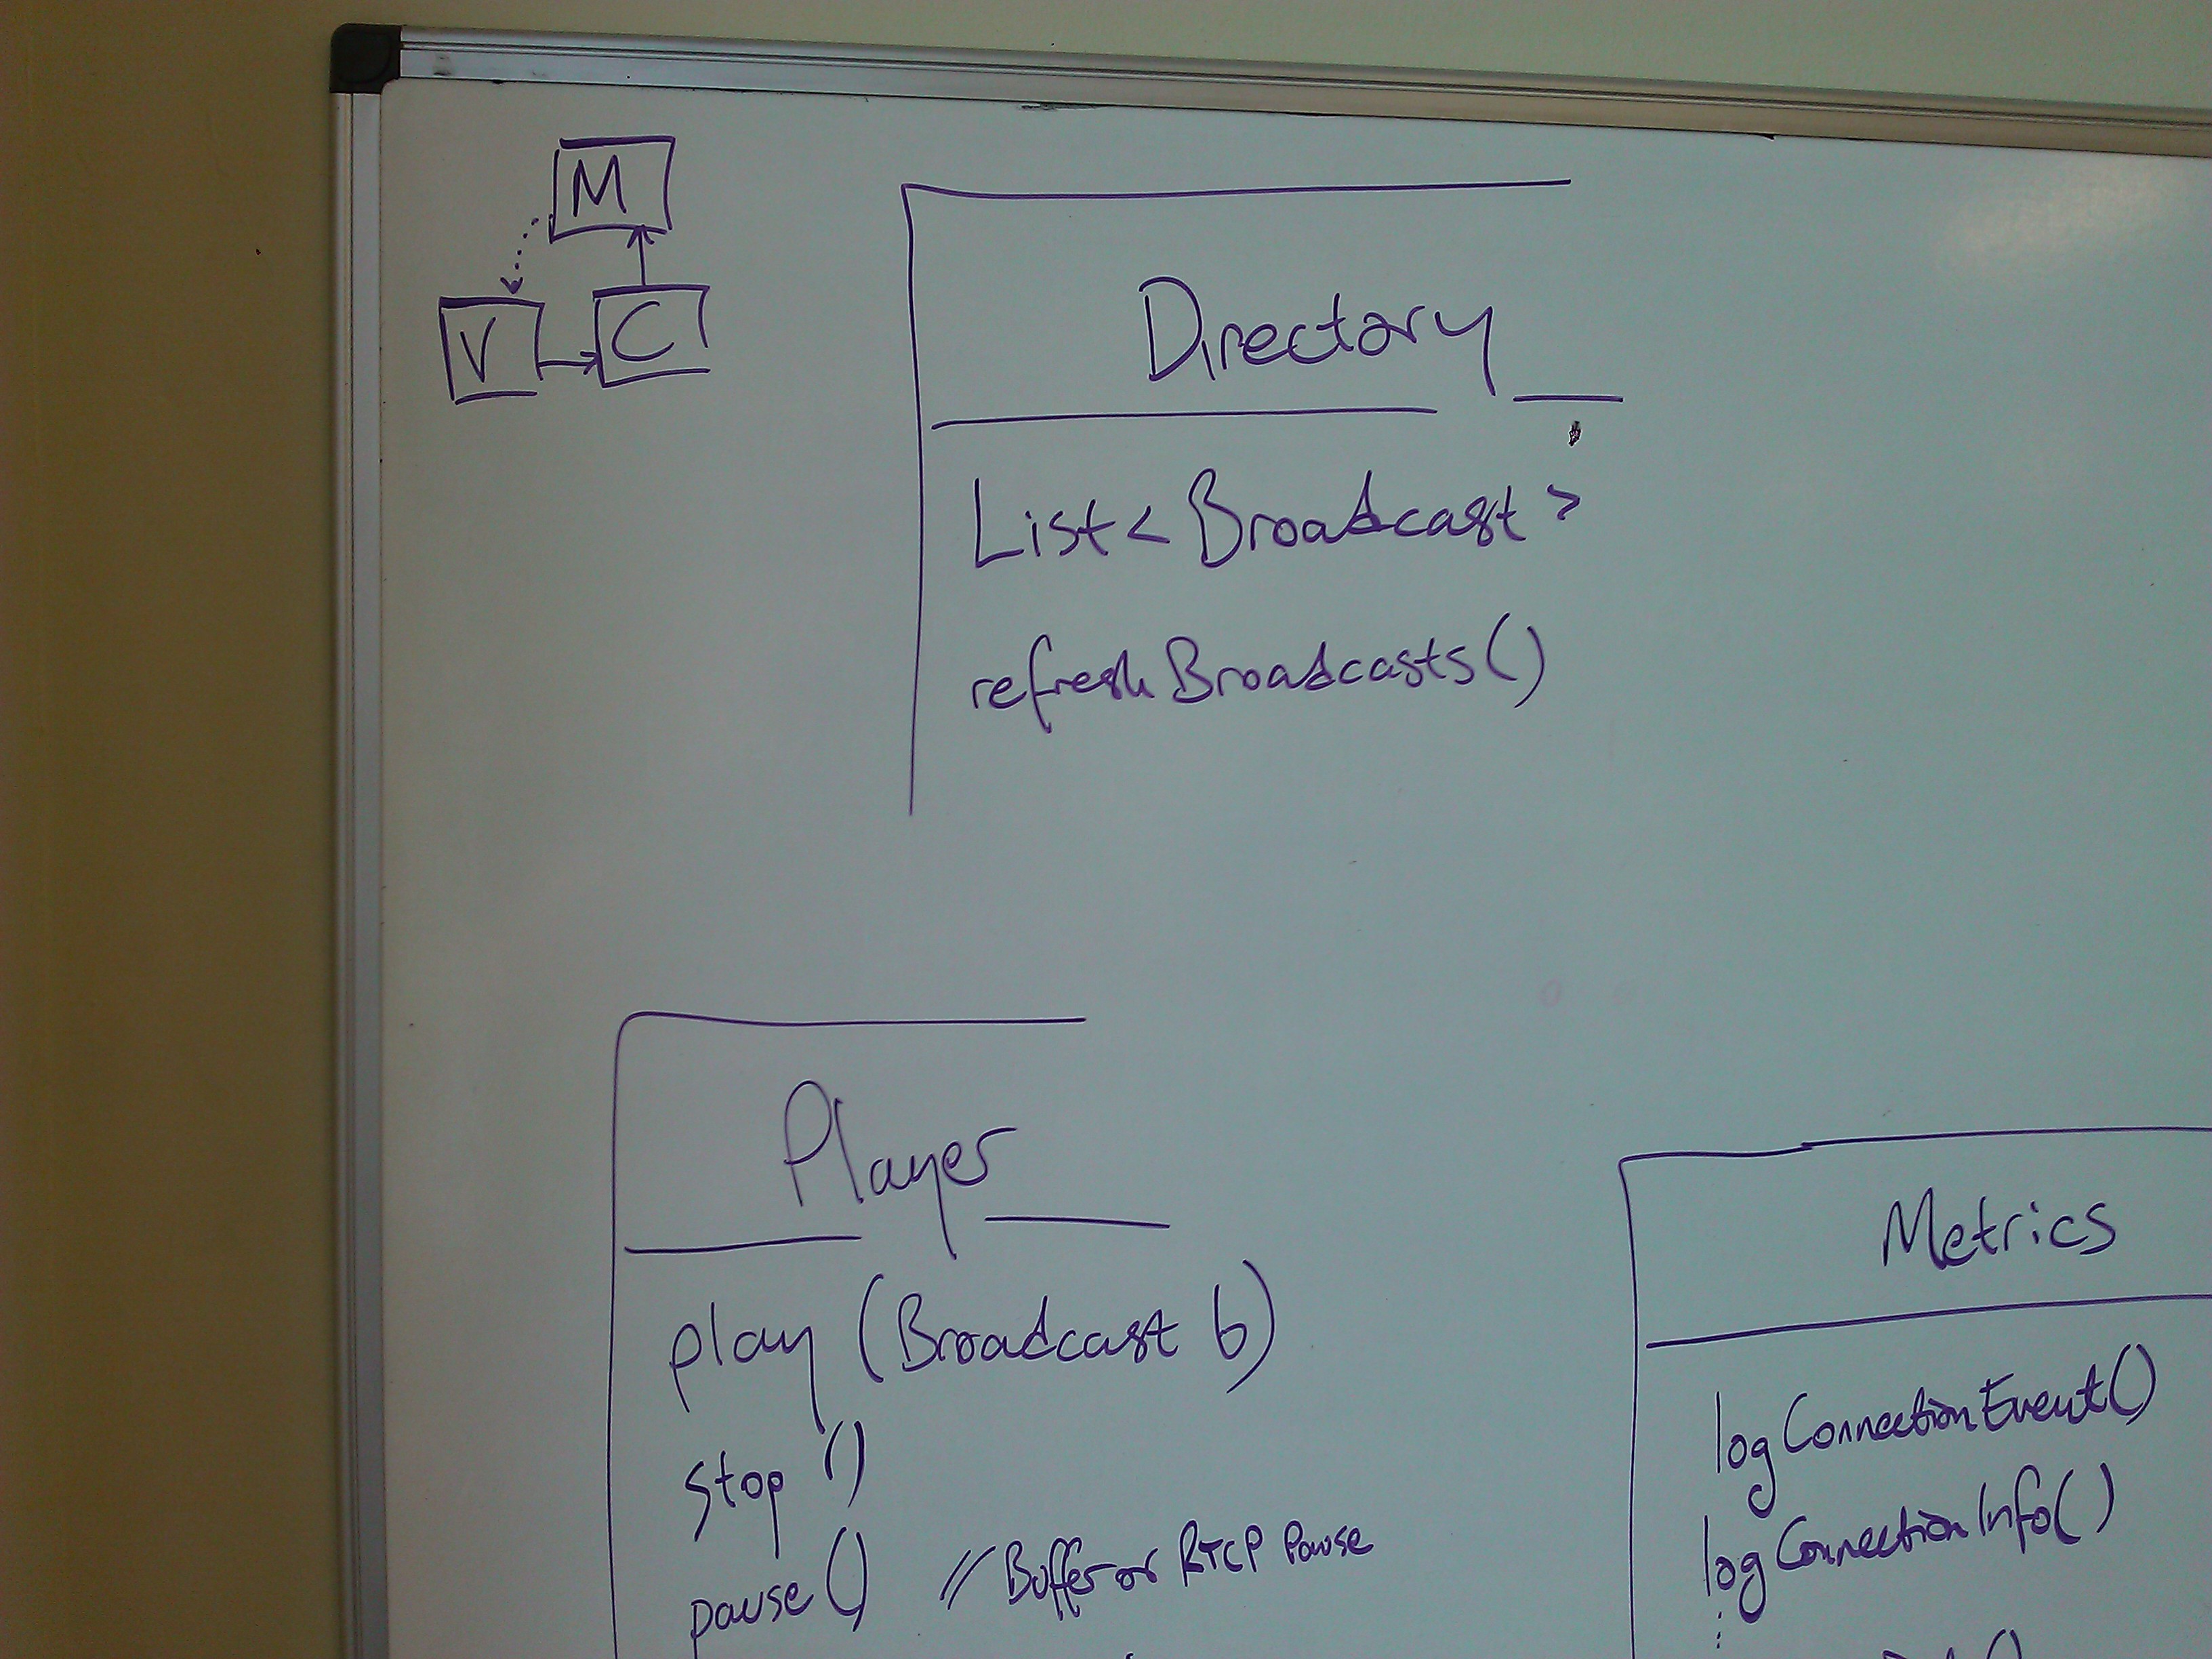 M
V
C
Directory
List<Broadcast>
refreshBroadcasts()
Player
play (Broadcast b)
stop ()
pause () // Buffer or RTCP Pause
Metrics
logConnectionEvent()
logConnectionInfo()